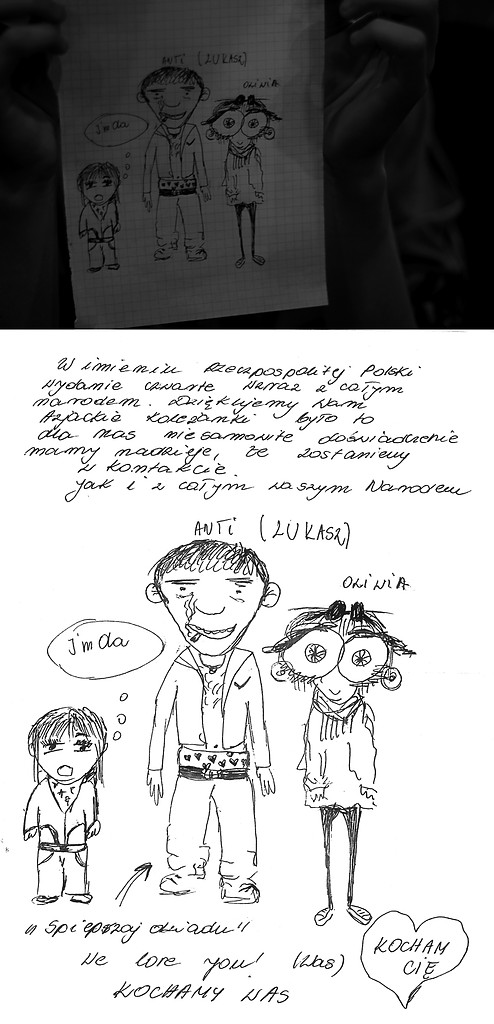 ANTI (ŁUKASZ)
OLIWIA
W imieniu Rzeczpospolitej Polski
wydanie czwarte wraz z całym
narodem. Dziękujemy Wam
Azjackie koleżanki było to
dla nas niesamowite doświadczenie
mamy nadzieje, że zostaniemy
w kontakcie.
jak i z całym waszym Narodem
ANTI (ŁUKASZ)
OLIWIA
"Spieprzaj dziadu"
We love you! (Was)
KOCHAM
CIĘ
KOCHAMY WAS